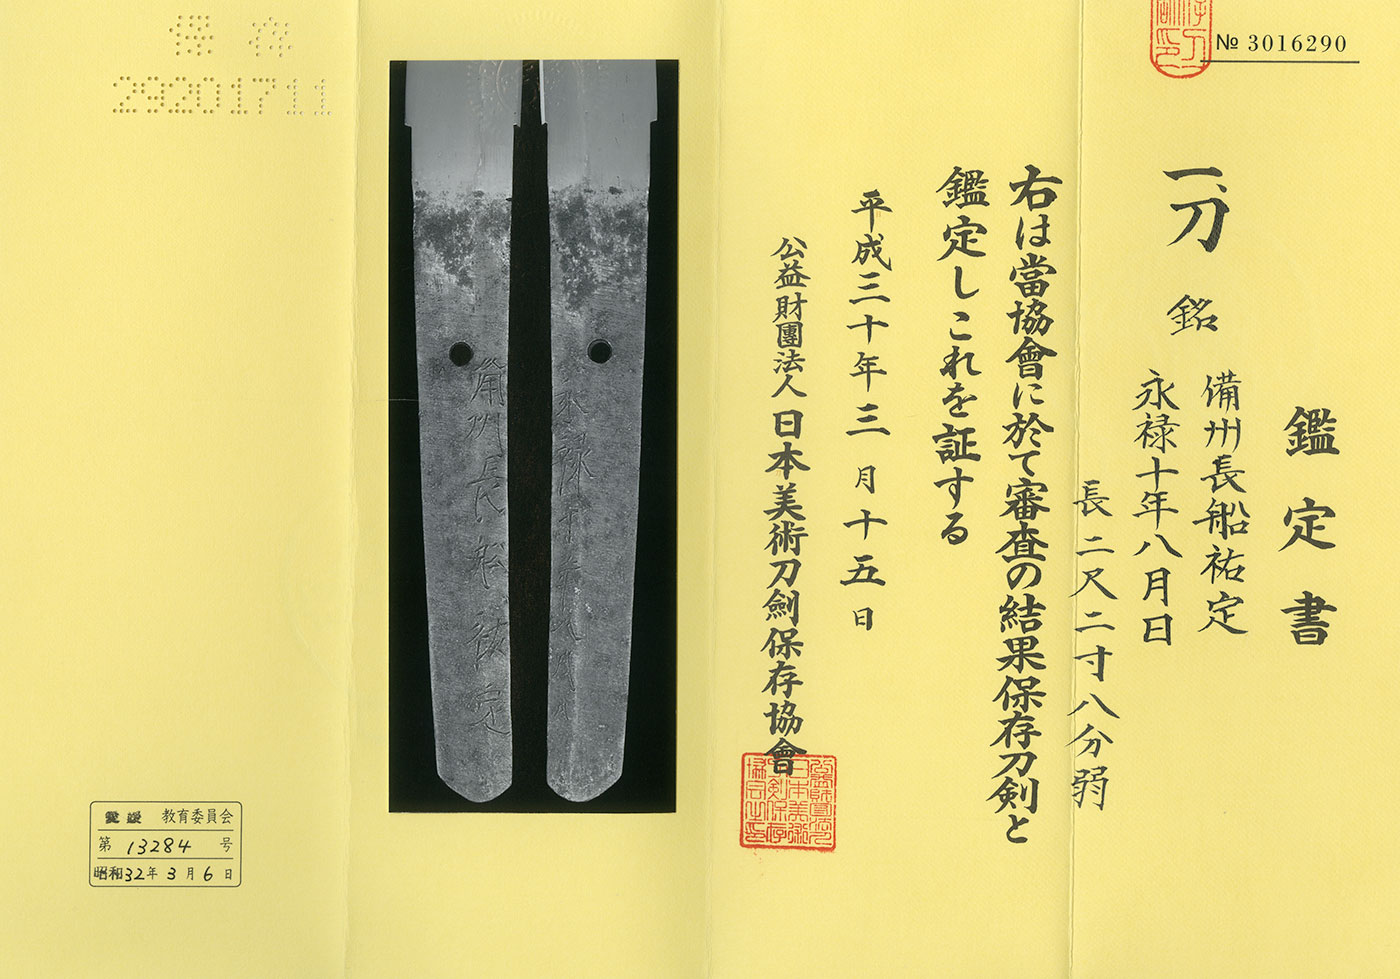 № 3016290
鑑定書
一、刀 銘
備州長船祐定
永禄十年八月日
長二尺二寸八分弱
右は當協會に於て審査の結果保存刀剣と
鑑定しこれを証する
平成三十年三月十五日
公益財團法人日本美術刀劍保存協會
備州長船祐定
永禄十年八月
保存
29201711
愛媛 教育委員会
第 13284 号
昭和32年3月6日